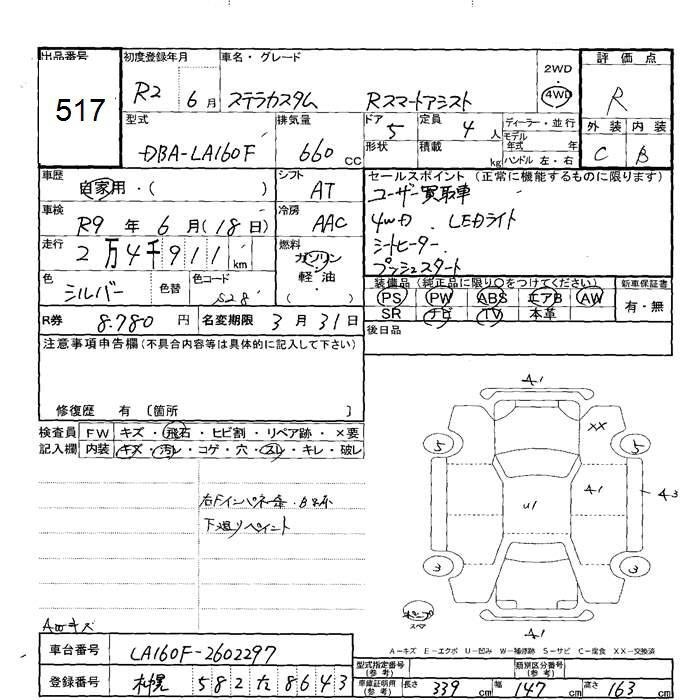 出品番号
517
初度登録年月
R2 6月
車名・グレード
ステラカスタム Rスマートアシスト
2WD
・
4WD
評価点
R
外装 内装
C B
型式
DBA-LA160F
排気量
660 cc
ドア
5
定員
4 人
形状
積載
kg
ディーラー・並行
モデル
年式 年
ハンドル 左・右
車歴
自家用・( )
シフト
AT
車検
R9年6月(18日)
冷房
AAC
走行
2万4千911km
燃料
ガソリン
軽油
・
( )
色
シルバー
色替
色コード
S28
R券 8.780円
名変期限 3月31日
セールスポイント (正常に機能するものに限ります)
ユーザー買取車
4WD . LEDライト
シートヒーター.
プッシュスタート
装備品 (純正品に限り○をつけてください)
PS PW ABS エアB AW
SR ナビ TV 本革
新車保証書
有・無
後日品
注意事項申告欄(不具合内容等は具体的に記入して下さい)
修復歴 有 〔箇所 〕
検査員
記入欄
FW キズ・飛石・ヒビ割・リペア跡・×要
内装 キズ・汚レ・コゲ・穴・スレ・キレ・破レ
下廻りペイント
AWキズ
A1
XX
5
5
A1
U1
A3
3
3
スペア
A1
A-キズ E-エクボ U-凹み W-補修跡 S-サビ C-腐食 XX-交換済
車台番号
LA160F-2602297
登録番号
札幌 582 た 8643
型式指定番号
(参考)
類別区分番号
(参考)
車庫証明用
(参考)
長さ 339 cm
幅 147 cm
高さ 163 cm